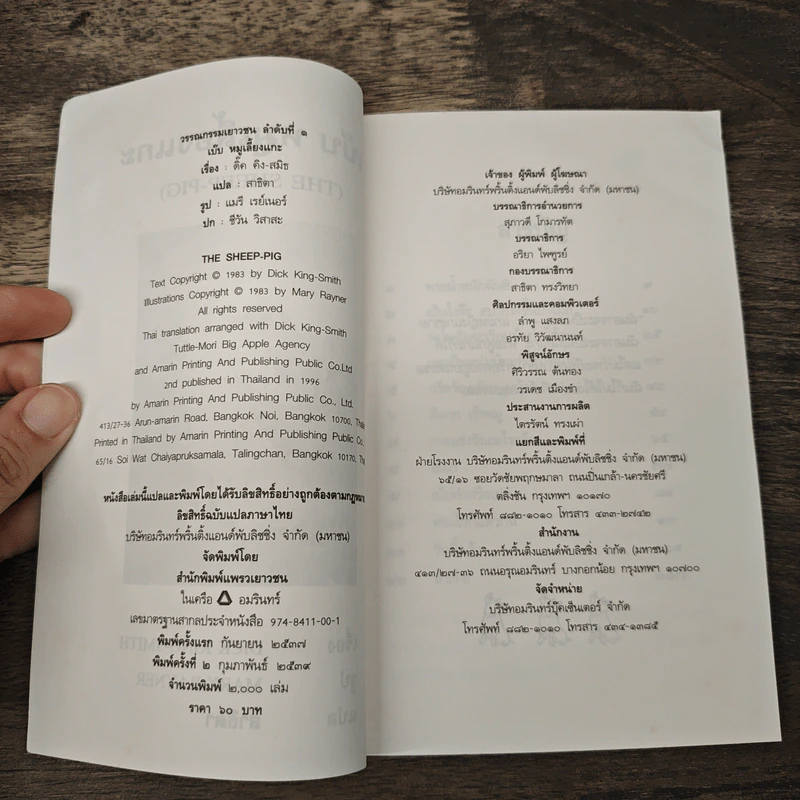 วรรณกรรมเยาวชน ลำดับที่ ๑
เบ๊บ หมูเลี้ยงแกะ
เรื่อง : ดิ๊ค คิง-สมิธ
แปล : สาธิตา
รูป : แมรี เรย์เนอร์
ปก : ชีวัน วิสาสะ
THE SHEEP-PIG
Text Copyright © 1983 by Dick King-Smith
Illustrations Copyright © 1983 by Mary Rayner
All rights reserved
Thai translation arranged with Dick King-Smith
Tuttle-Mori Big Apple Agency
and Amarin Printing And Publishing Public Co.Ltd
2nd published in Thailand in 1996
by Amarin Printing And Publishing Public Co., Ltd.
413/27-36 Arun-amarin Road, Bangkok Noi, Bangkok 10700,
Printed in Thailand by Amarin Printing And Publishing Public Co.
65/16 Soi Wat Chaiyapruksamala, Talingchan, Bangkok 10170,
หนังสือเล่มนี้แปลและพิมพ์โดยได้รับลิขสิทธิ์อย่างถูกต้องตามกฎหมาย
ลิขสิทธิ์ฉบับแปลภาษาไทย
บริษัทอมรินทร์พริ้นติ้งแอนด์พับลิชชิ่ง จำกัด (มหาชน)
จัดพิมพ์โดย
สำนักพิมพ์แพรวเยาวชน
ในเครือ อมรินทร์
เลขมาตรฐานสากลประจำหนังสือ 974-8411-00-1
พิมพ์ครั้งแรก กันยายน ๒๕๓๗
พิมพ์ครั้งที่ ๒ กุมภาพันธ์ ๒๕๓๙
จำนวนพิมพ์ ๒,๐๐๐ เล่ม
ราคา ๖๐ บาท
เจ้าของ ผู้พิมพ์ ผู้โฆษณา
บริษัทอมรินทร์พริ้นติ้งแอนด์พับลิชชิ่ง จำกัด (มหาชน)
บรรณาธิการอำนวยการ
สุภาวดี โกมารทัต
บรรณาธิการ
อริยา ไพฑูรย์
กองบรรณาธิการ
สาธิตา ทรงวิทยา
ศิลปกรรมและคอมพิวเตอร์
ลำพู แสงลภ
อรทัย วิวัฒนานนท์
พิสูจน์อักษร
ศิริวรรณ ต้นทอง
วรเดช เมืองขำ
ประสานงานการผลิต
ไตรรัตน์ ทรงเผ่า
แยกสีและพิมพ์ที่
ฝ่ายโรงงาน บริษัทอมรินทร์พริ้นติ้งแอนด์พับลิชชิ่ง จำกัด (มหาชน)
๖๕/๑๖ ซอยวัดชัยพฤกษมาลา ถนนปิ่นเกล้า-นครชัยศรี
ตลิ่งชัน กรุงเทพฯ ๑๐๑๗๐
โทรศัพท์ ๘๘๒-๑๐๑๐ โทรสาร ๔๓๓-๒๗๔๒
สำนักงาน
บริษัทอมรินทร์พริ้นติ้งแอนด์พับลิชชิ่ง จำกัด (มหาชน)
๔๑๓/๒๗-๓๖ ถนนอรุณอมรินทร์ บางกอกน้อย กรุงเทพฯ ๑๐๗๐๐
จัดจำหน่าย
บริษัทอมรินทร์บุ๊คเซ็นเตอร์ จำกัด
โทรศัพท์ ๘๘๒-๑๐๑๐ โทรสาร ๔๓๔-๑๓๘๕